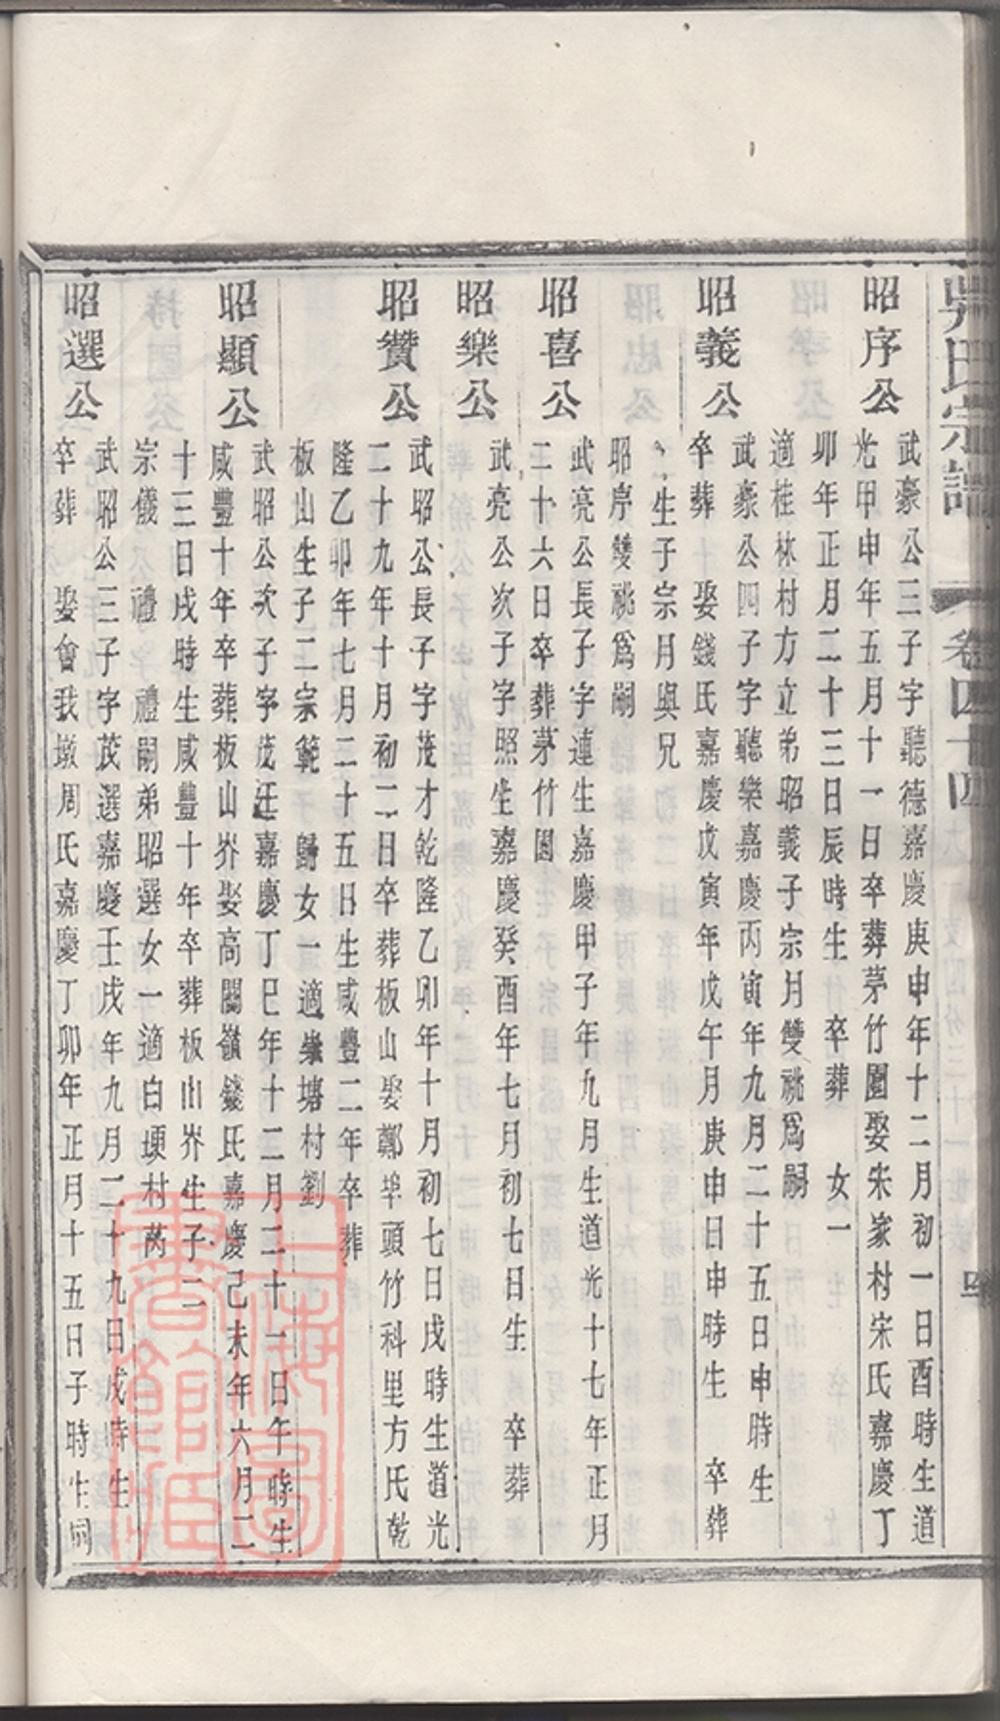 吳氏宗譜
卷四十四
昭序公
武豪公三子字聽德嘉慶庚申年十二月初一日酉時生道
光甲申年五月十一日卒葬茅竹園娶朱家村宋氏嘉慶丁
卯年正月二十三日辰時生 卒葬 女一
適桂林村方立弟昭義子宗月雙祧爲嗣
昭義公
武豪公四子字聽樂嘉慶丙寅年九月二十五日申時生
卒葬 娶錢氏嘉慶戊寅年戊午月庚申日申時生 卒葬
生子宗月與兄
昭序雙祧爲嗣
昭喜公
武亮公長子字連生嘉慶甲子年九月生道光十七年正月
二十六日卒葬茅竹園
昭樂公
武亮公次子字照生嘉慶癸酉年七月初七日生 卒葬
昭贊公
武昭公長子字茂才乾隆乙卯年十月初七日戌時生道光
二十九年十月初二日卒葬板山娶鄭埠頭竹科里方氏乾
隆乙卯年七月二十五日生咸豐二年卒葬
板山生子二宗範 歸女一適 塘村劉
昭顯公
武昭公次子字茂廷嘉慶丁巳年十二月二十二日午時生
咸豐十年卒葬板山岕娶高閣嶺錢氏嘉慶己未年六月二
十三日戌時生咸豐十年卒葬板山岕生子二
宗儀 禮 禮嗣弟昭選女一適白 村芮
昭選公
武昭公三子字茂選嘉慶壬戌年九月二十九日戌時生
卒葬 娶會我墩周氏嘉慶丁卯年正月十五日子時生同
上海圖書館藏